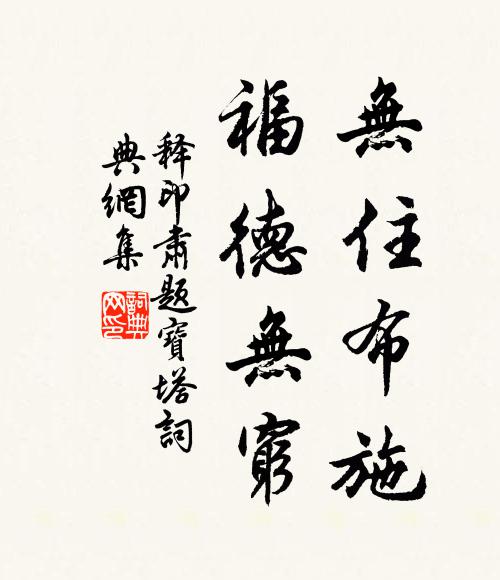 無住布施
福德無窮
釋印肅題寶塔詞
典網集
詞典网印